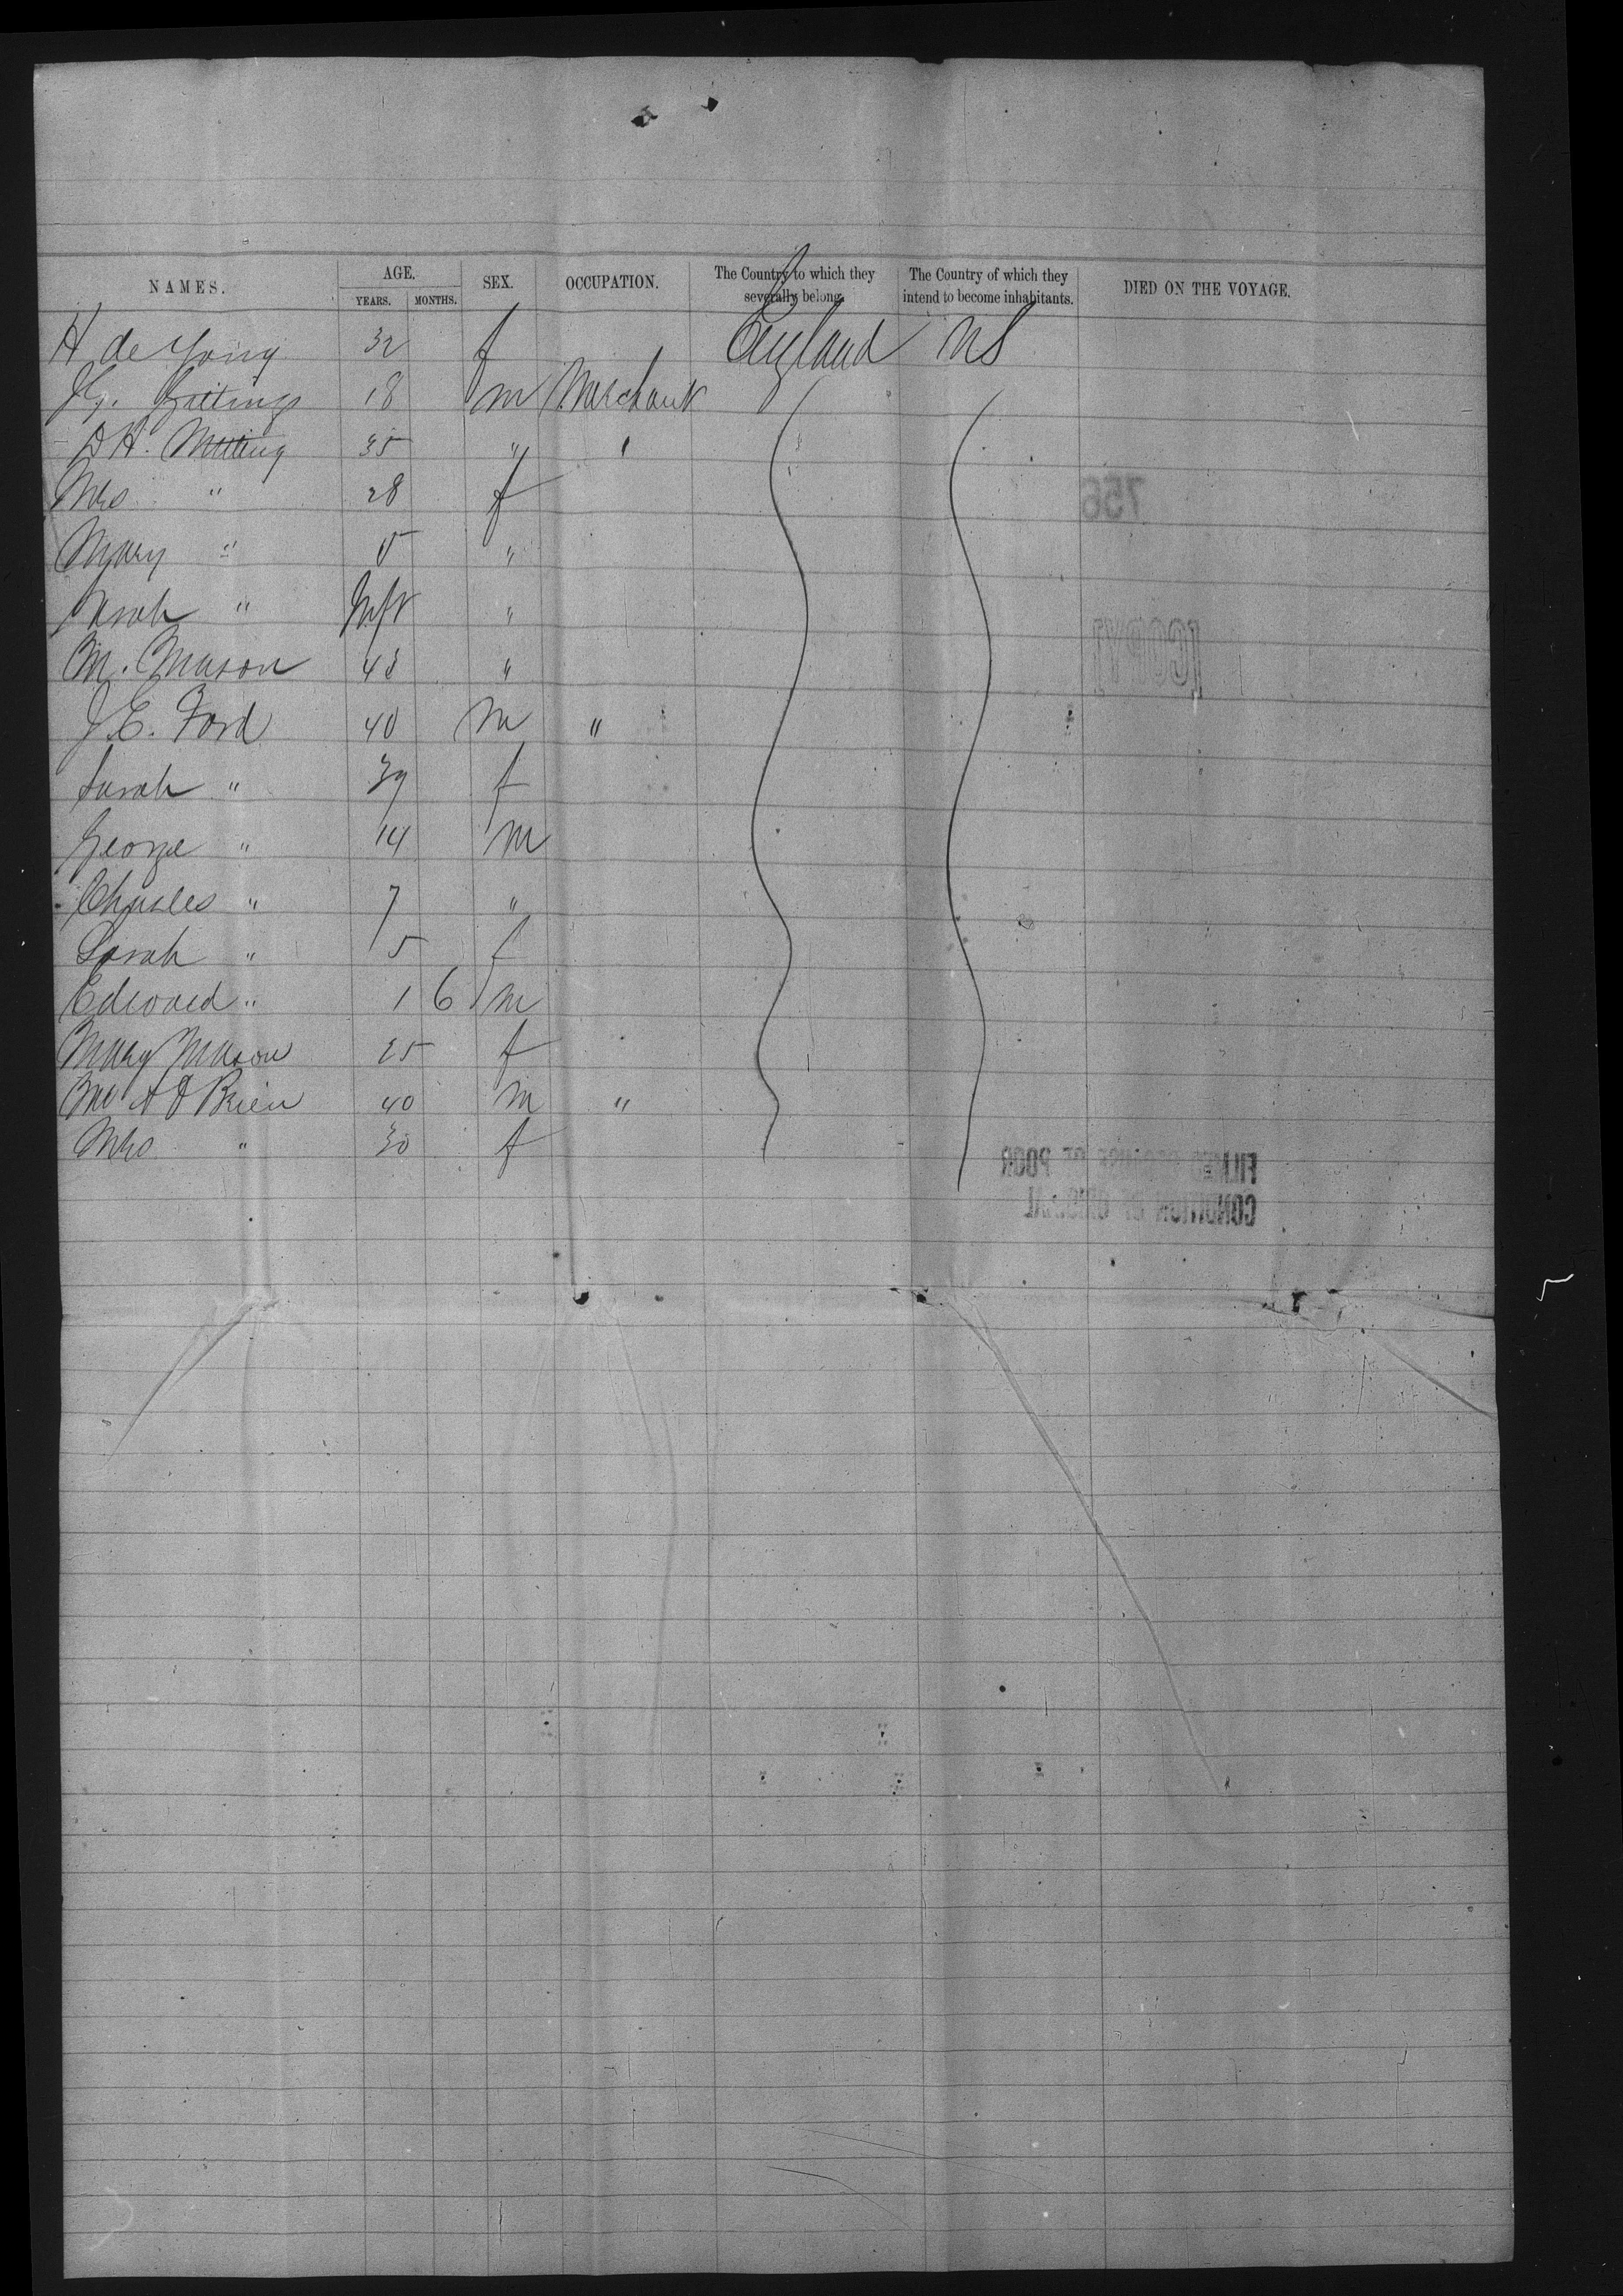 NAMES. AGE. SEX. OCCUPATION. The Country to which they severally belong. The Country of which they intend to become inhabitants. DIED ON THE VOYAGE.
YEARS. MONTHS.
H de 32 f England US
J G. 18 m Merchant
D H. 35 " "
Mrs " 28 f
Mary " "
Sarah " Inft "
M. Mason 43 "
J. E. Ford 40 m "
Sarah " 39 f
George " 14 m
Charles " 7 "
Sarah " 5 f
Edward " 1 6 m
Mary Mason 25 f
Mr A O Brien 40 m "
Mrs " 30 f
756
[COPY]
FILMED BECAUSE OF POOR
CONDITION OF ORIGINAL